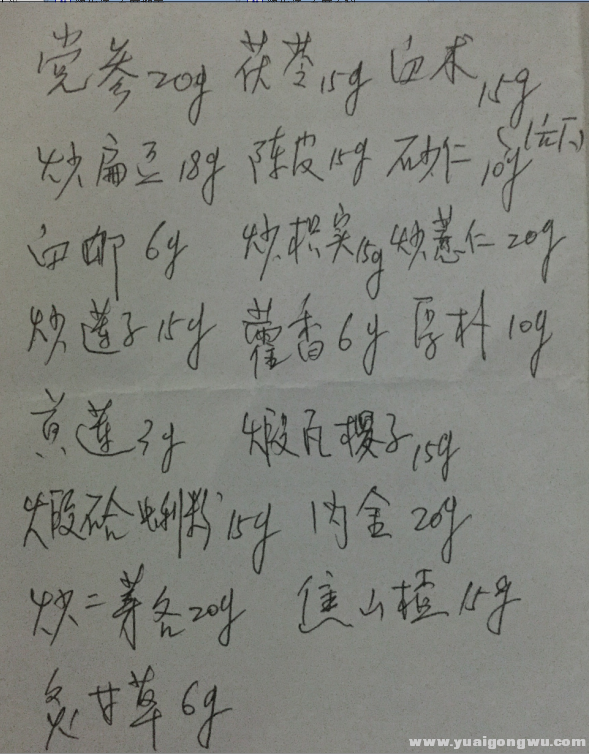 党参20g 茯苓15g 白术15g
炒扁豆18g 陈皮15g 砂仁10g(后下)
白蔻6g 炒枳实15g 炒薏仁20g
炒莲子15g 藿香6g 厚朴10g
黄莲3g 煅瓦楞子15g
煅蛤蜊粉15g 内金20g
炒二芽各20g 焦山楂15g
炙甘草6g
www.yuaigongwu.com